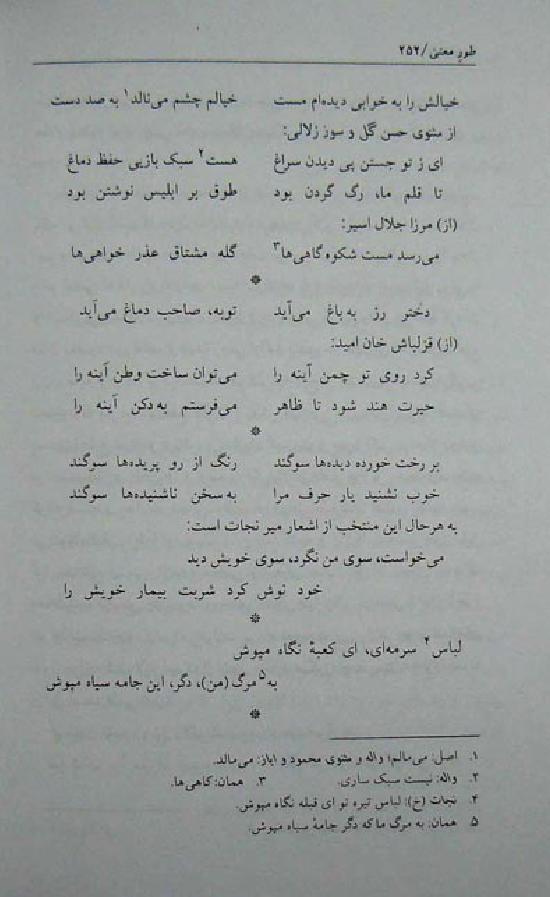 طور معنی/۲۵۲
خیالش را به خوابی دیده‌ام مست خیالم چشم می‌نالد۱ به صد دست
از مثنوی حسن گل و سوز زلالی:
ای ز تو جستن پی دیدن سراغ هست۲ سبک بازیی حفظ دماغ
تا قلم ما، رگ گردن بود طوق بر ابلیس نوشتن بود
(از) مرزا جلال اسیر:
می‌رسد مست شکوه گاهی‌ها۳ گله مشتاق عذر خواهی‌ها
*
دختر رز به باغ می‌آید توبه، صاحب دماغ می‌آید
(از) قزلباش خان امید:
کرد روی تو چمن آینه را می‌توان ساخت وطن آینه را
حیرت هند شود تا ظاهر می‌فرستم به دکن آینه را
*
بر رخت خورده دیده‌ها سوگند رنگ از رو پریده‌ها سوگند
خوب نشنید یار حرف مرا به سخن ناشنیده‌ها سوگند
به هرحال این منتخب از اشعار میر نجات است:
می‌خواست، سوی من نگرد، سوی خویش دید
خود نوش کرد شربت بیمار خویش را
*
لباس۴ سرمه‌ای، ای کعبهٔ نگاه مپوش
به۵ مرگ (من)، دگر، این جامه سیاه مپوش
*
۱. اصل: می‌مالم؛ واله و مثنوی محمود و ایاز: می‌مالد.
۲. واله: نیست سبک ساری. ۳. همان: کاهی‌ها.
۴. نجات (خ): لباس تیره تو ای قبله نگاه مپوش.
۵. همان: به مرگ ما که دگر جامهٔ سیاه مپوش.